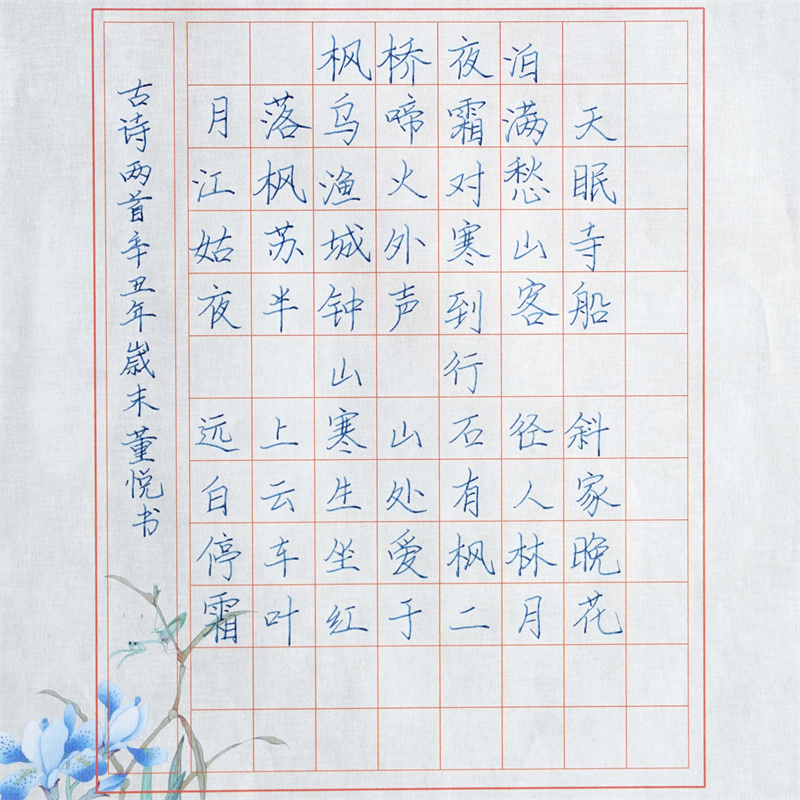 枫桥夜泊
月落乌啼霜满天
江枫渔火对愁眠
姑苏城外寒山寺
夜半钟声到客船
山行
远上寒山石径斜
白云生处有人家
停车坐爱枫林晚
霜叶红于二月花
古诗两首辛丑年岁末董悦书